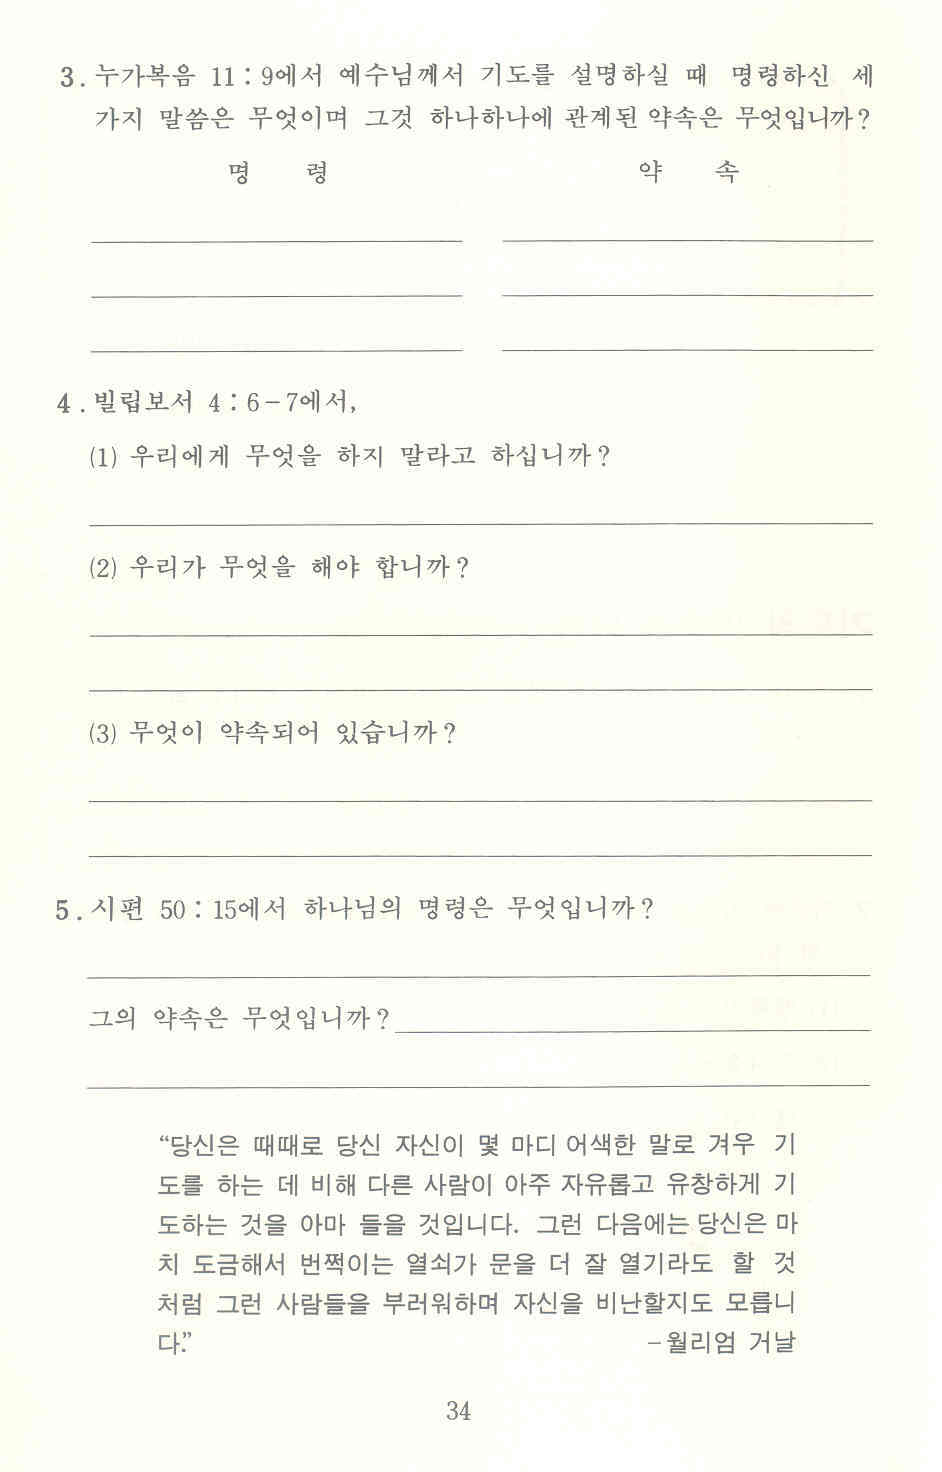 3. 누가복음 11 : 9에서 예수님께서 기도를 설명하실 때 명령하신 세
가지 말씀은 무엇이며 그것 하나하나에 관계된 약속은 무엇입니까?
명 령 약 속
4. 빌립보서 4 : 6-7에서,
(1) 우리에게 무엇을 하지 말라고 하십니까?
(2) 우리가 무엇을 해야 합니까?
(3) 무엇이 약속되어 있습니까?
5. 시편 50 : 15에서 하나님의 명령은 무엇입니까?
그의 약속은 무엇입니까?
“당신은 때때로 당신 자신이 몇 마디 어색한 말로 겨우 기
도를 하는 데 비해 다른 사람이 아주 자유롭고 유창하게 기
도하는 것을 아마 들을 것입니다. 그런 다음에는 당신은 마
치 도금해서 번쩍이는 열쇠가 문을 더 잘 열기라도 할 것
처럼 그런 사람들을 부러워하며 자신을 비난할지도 모릅니
다.”
-윌리엄 거날
34